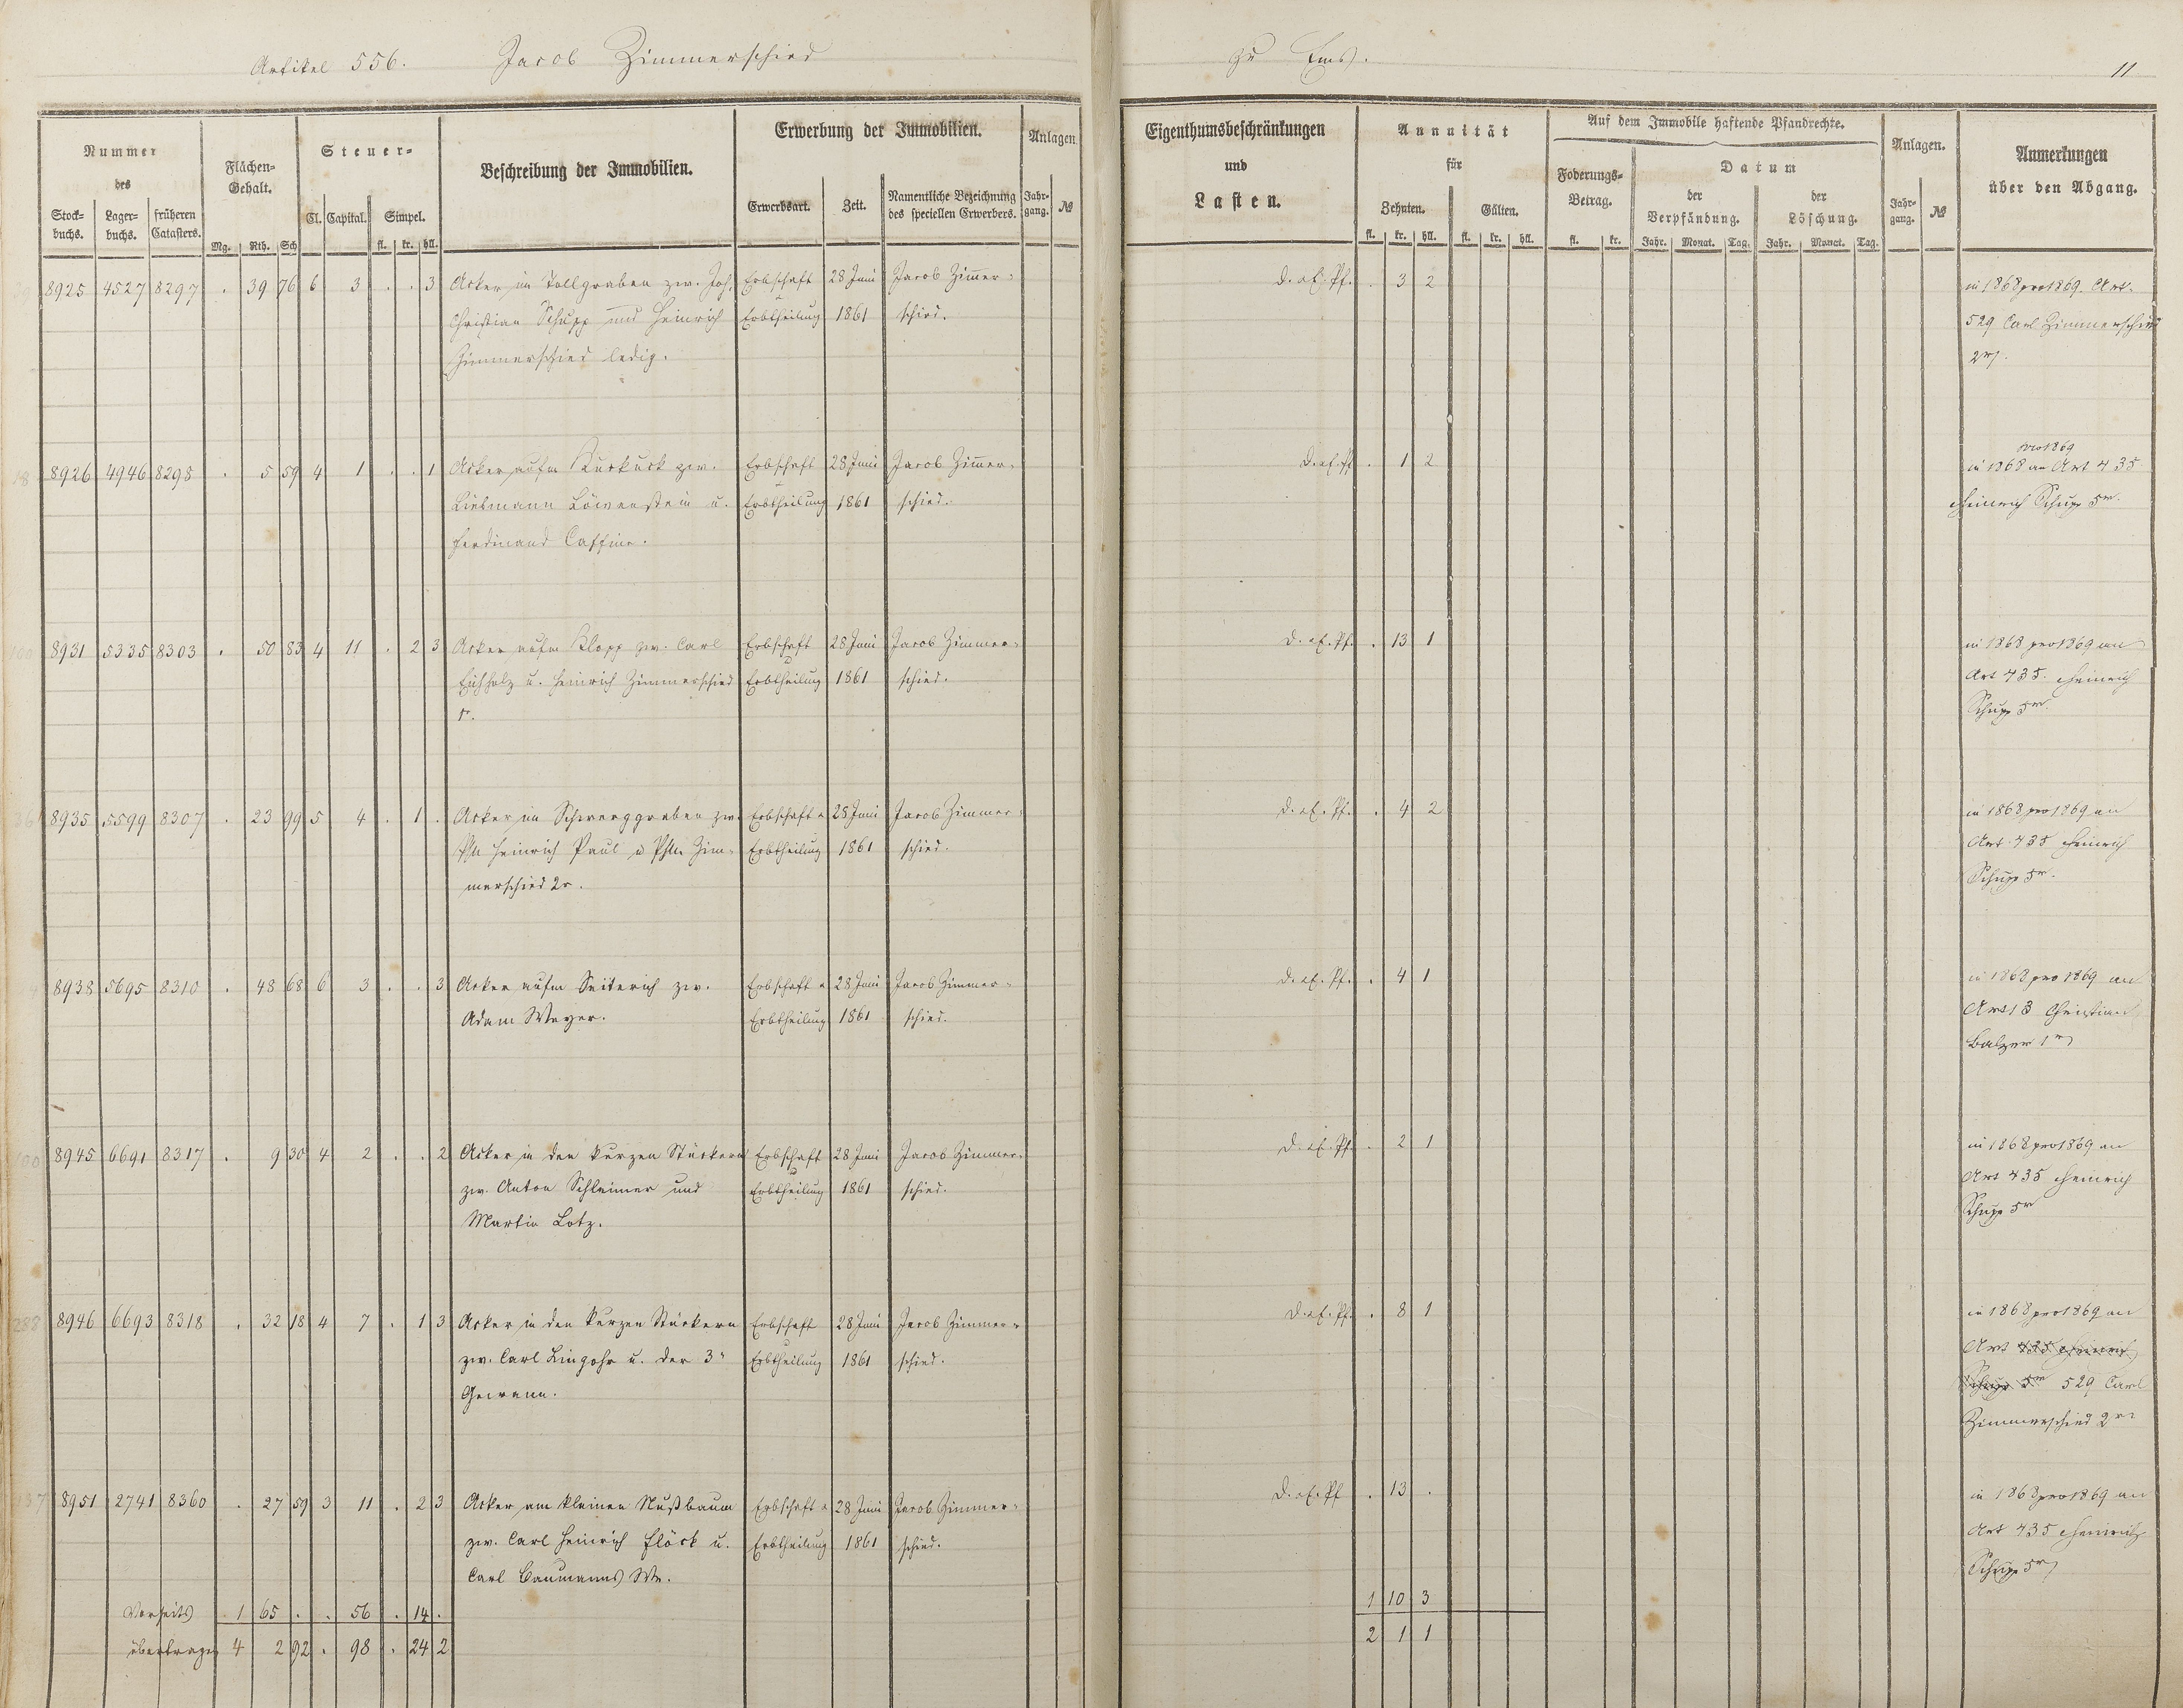 Artikel 556. Jacob Zimmerschied zu Ems. 11
Nummer des
Stockbuchs. Lagerbuchs. früheren Catasters.
Flächen-Gehalt.
Mg. Rth. Sch
Steuer-
Cl. Capital. Simpel.
fl. kr. hll.
Beschreibung der Immobilien.
Erwerbung der Immobilien.
Erwerbsart. Zeit. Namentliche Bezeichnung des speciellen Erwerbers.
Anlagen.
Jahrgang. №
Eigenthumsbeschränkungen und Lasten.
Annuität für
Zehnten. Gülten.
fl. kr. hll. fl. kr. hll.
Auf dem Immobile haftende Pfandrechte.
Foderungs-Betrag.
fl. kr.
Datum
der Verpfändung. der Löschung.
Jahr. Monat. Tag. Jahr. Monat. Tag.
Anlagen.
Jahrgang. №
Anmerkungen über den Abgang.
8925 4527 8297 . 39 76 6 3 . . 3 Acker im Tollgraben zw. Joh. Erbschaft 28 Juni Jacob Zimmer- D. ef. Pf. . 3 2 in 1868 pro 1869. Art.
Christian Schupp und Heinrich Erbtheilung 1861 schied. 529 Carl Zimmerschied
Zimmerschied ledig. 2r
pro 1869
8926 4946 8298 . 5 59 4 1 . . 1 Acker aufm Kuckuck zw. Erbschaft 28 Juni Jacob Zimmer- D. ef. Pf. . 1 2 in 1868 an Art 435
Liebmann Löwenstein u. Erbtheilung 1861 schied. Heinrich Schupp 5r.
Ferdinand Caffine.
8931 5335 8303 . 50 83 4 11 . 2 3 Acker aufm Klopp zw. Carl Erbschaft 28 Juni Jacob Zimmer- D. ef. Pf. . 13 1 in 1868 pro 1869 an
Eichholz u. Heinrich Zimmerschied Erbtheilung 1861 schied. Art 435. Heinrich
1r. Schupp 5r.
8935 5599 8307 . 23 99 5 4 . 1 . Acker im Schweeggraben zw. Erbschaft u 28 Juni Jacob Zimmer- D. ef. Pf. . 4 2 in 1868 pro 1869 an
Phil. Heinrich Paul u Phil. Zim- Erbtheilung 1861 schied. Art. 435 Heinrich
merschied 2r. Schupp 5r.
8938 5695 8310 . 48 68 6 3 . . 3 Acker aufm Seiterich zw. Erbschaft u 28 Juni Jacob Zimmer- D. ef. Pf. . 4 1 in 1868 pro 1869 an
Adam Weyer. Erbtheilung 1861 schied. Art 13 Christian
Balzer 1r
8945 6691 8317 . 9 30 4 2 . . 2 Acker in den kurzen Stückern Erbschaft 28 Juni Jacob Zimmer- D. ef. Pf. . 2 1 in 1868 pro 1869 an
zw. Anton Schleimer und Erbtheilung 1861 schied. Art 435 Heinrich
Martin Lotz. Schupp 5r
8946 6693 8318 . 32 18 4 7 . 1 3 Acker in den kurzen Stückern Erbschaft 28 Juni Jacob Zimmer- D. ef. Pf. . 8 1 in 1868 pro 1869 an
zw. Carl Lingohr u. der 3n Erbtheilung 1861 schied. Art 435 Heinrich
Gewann. Schupp 5r 529 Carl
Zimmerschied 2r
8951 2741 8360 . 27 59 3 11 . 2 3 Acker am kleinen Nußbaum Erbschaft u 28 Juni Jacob Zimmer- D. ef. Pf . 13 . in 1868 pro 1869 an
zw. Carl Heinrich Flöck u. Erbtheilung 1861 schied. Art 435 Heinrich
Carl Baumanns We. Schupp 5r
Vorseits 1 65 . . 56 . 14 . 1 10 3
übertragen 4 2 92 . 98 . 24 2 2 1 1